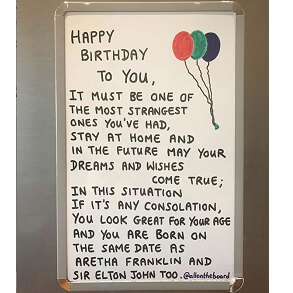 HAPPY
BIRTHDAY
TO YOU,
IT MUST BE ONE OF
THE MOST STRANGEST
ONES YOU'VE HAD,
STAY AT HOME AND
IN THE FUTURE MAY YOUR
DREAMS AND WISHES
COME TRUE;
IN THIS SITUATION
IF IT'S ANY CONSOLATION,
YOU LOOK GREAT FOR YOUR AGE
AND YOU ARE BORN ON
THE SAME DATE AS
ARETHA FRANKLIN AND
SIR ELTON JOHN TOO. @allontheboard